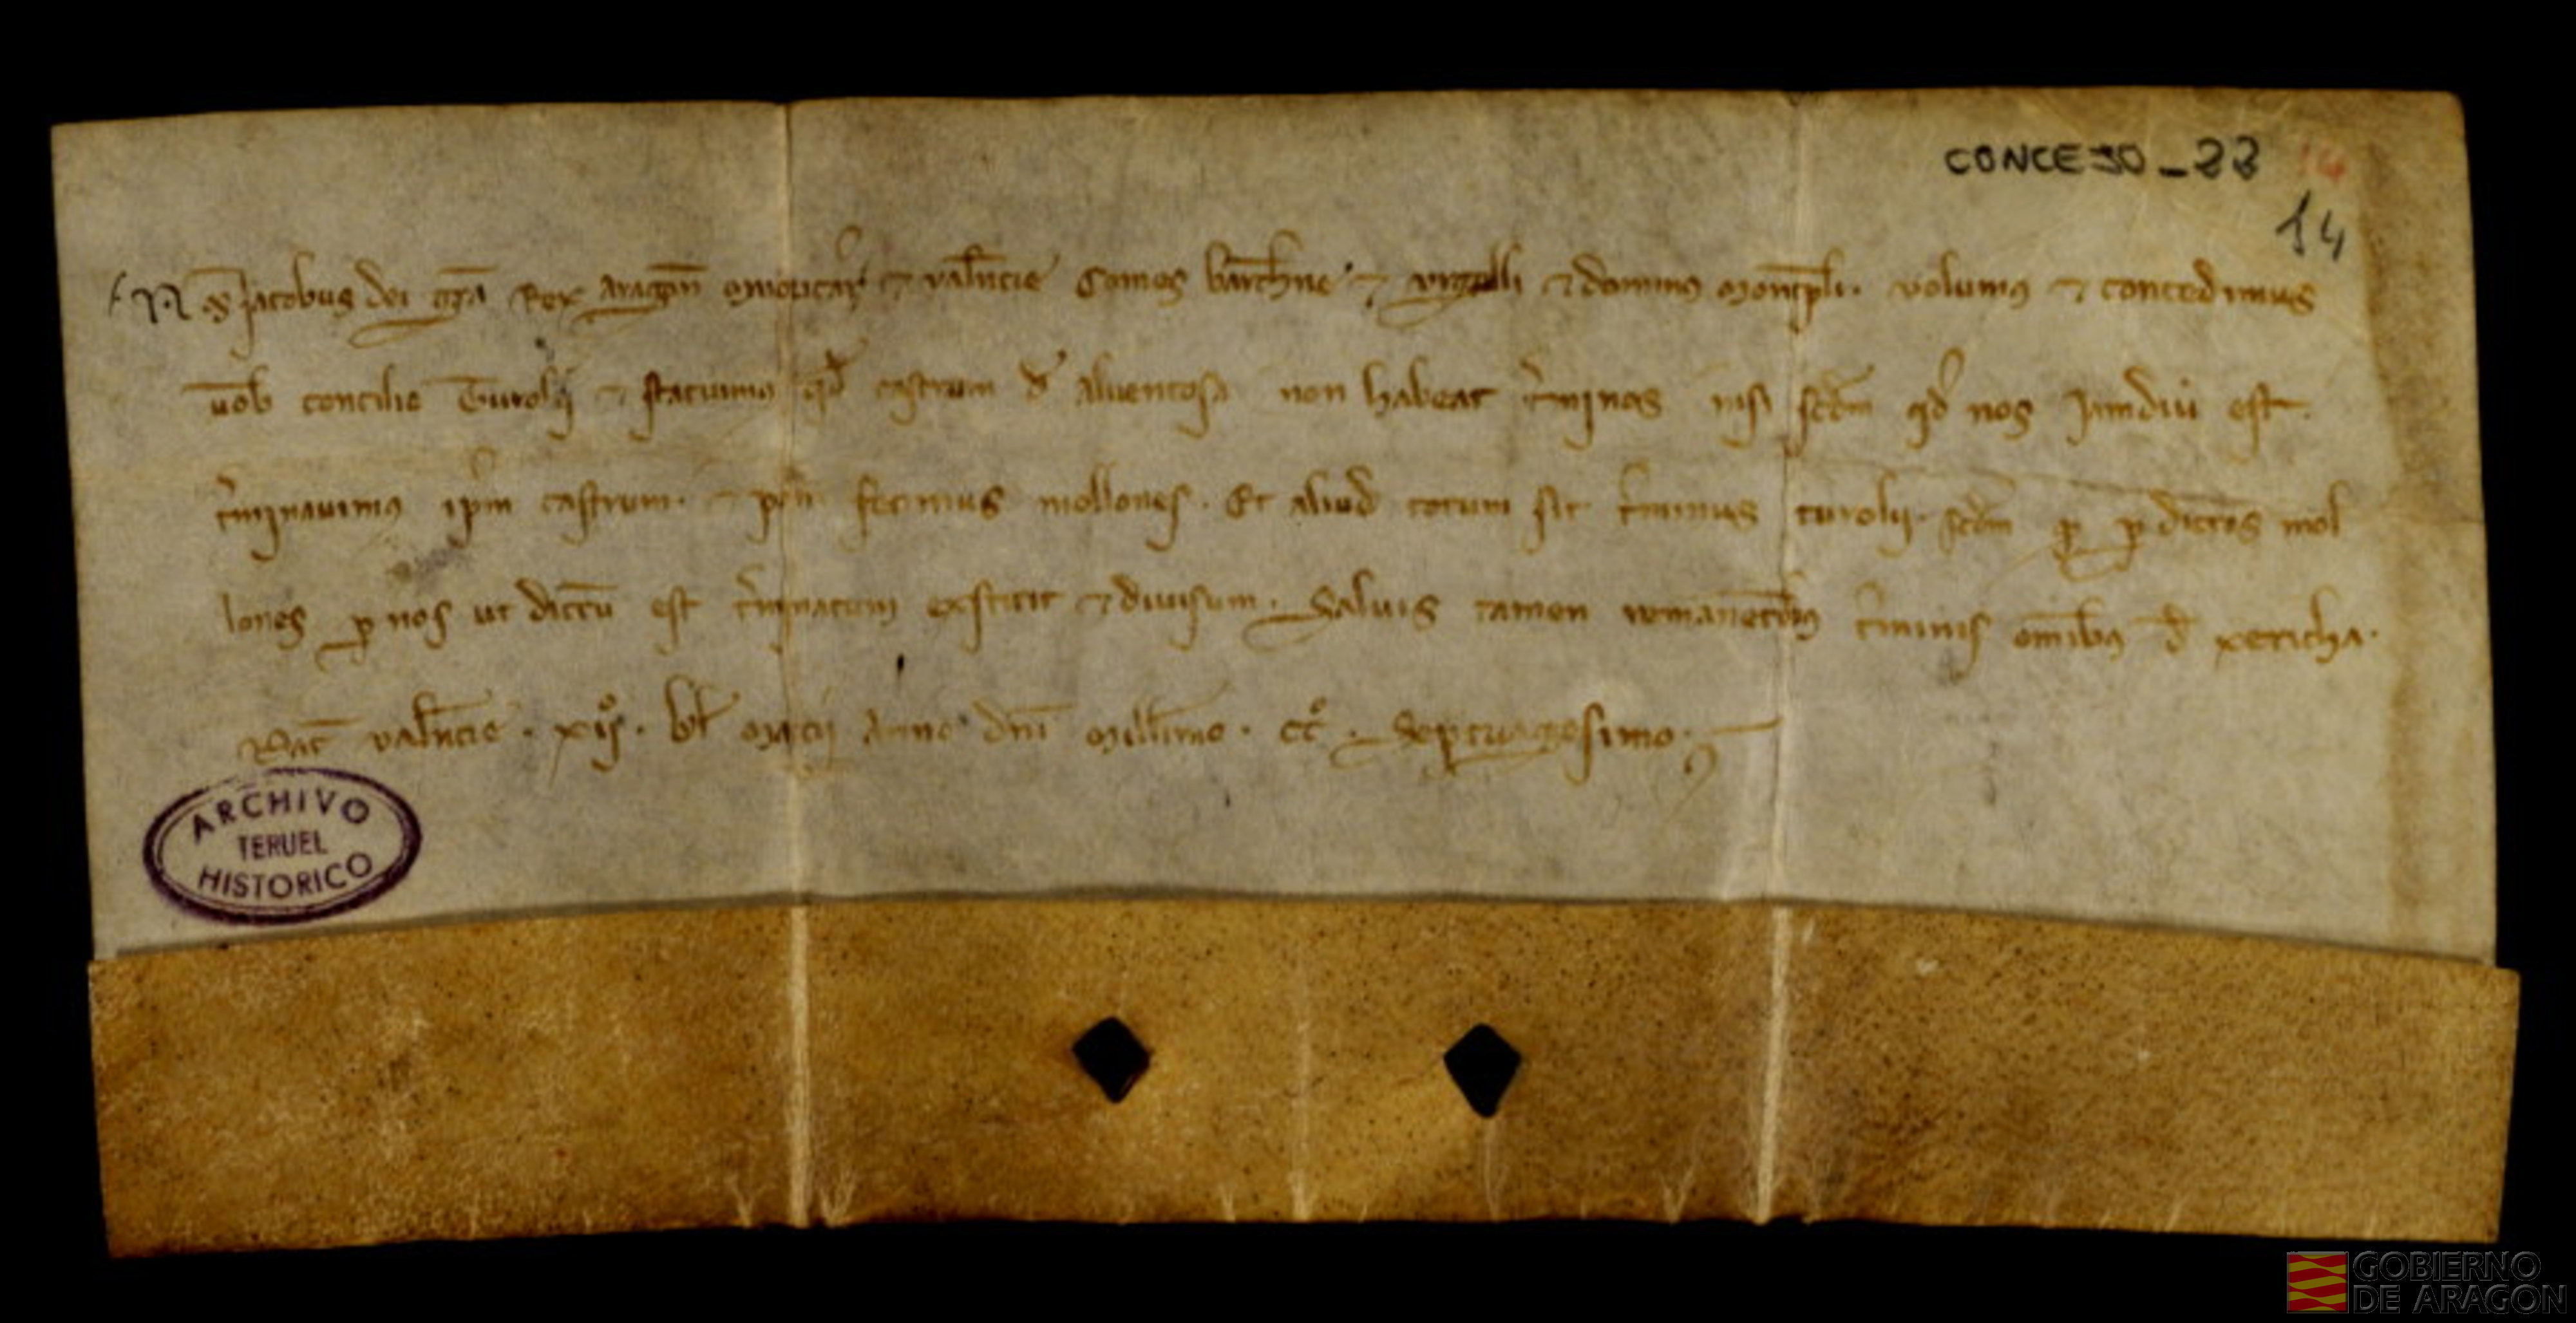 CONCEJO_22 14
14
Nos Jacobus dei gr̄a Rex aragon̄ maioricar̄ et valēncie Comes barch̄ne et urgelli et dominus montispl̄i. volumus et concedimus
vob̄ concilio Turolij et statuimus qd̄ castrum d̄ alventosa non habeat t̄minos nisi scd̄m qd̄ nos jamdiu est.
t̄minavimus ip̄m castrum. et fecimus mollones. Et aliud totum sit t̄minus turolij. scd̄m p̄dictos mol
lones p nos ut dictū est t̄minatum exstitit et divisum. Salvis tamen remanētibus t̄minis om̄ibus d̄ xericha.
Dat̄ valēncie. kl̄ marcij anno dn̄i mill̄imo. CC̊. Septuagesimo.
ARCHIVO
TERUEL
HISTORICO
GOBIERNO
DE ARAGON